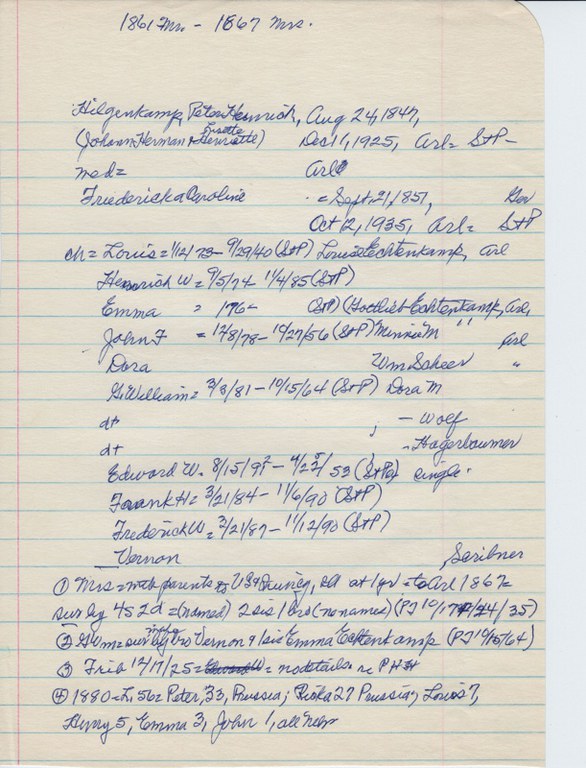 1861 Mr. - 1867 Mrs.
Hilgenkamp, Peter Heinrich, Aug 24, 1847,
(Johann Herman & Lisette Henriette) Dec 1, 1925, Arl= StP-
med= Arl
Fredericka Caroline = Sept. 21, 1851, Ger
Oct 12, 1935, Arl= StP
ch= Louis= 1/12/73- 9/29/40 (StP) Louise Echtenkamp, Arl
Heinrich W= 9/5/74- 11/4/85 (StP)
Emma = 1/76- (StP) (Gottlieb Echtenkamp, Arl,
John F = 12/8/78- 10/27/56 (StP) Minnie M " " Arl
Dora Wm. Scheer "
G. William= 3/3/81- 10/15/64 (StP) Dora M
dt ; - Wolf
dt - Hagerbaumer
Edward W. 8/15/92- 4/25/53 (StP) single.
Frank H= 3/21/84- 11/6/90 (StP)
Frederick W= 3/21/87- 11/12/90 (StP)
Vernon , Scribner
① Mrs= parents to USA at 1 yr = to Arl 1867=
sur by 4s 2d = (named) 2 sis 1 bro (no names) (PJ 10/17 /35)
② G Wm= sur by bro Vernon & 1 sis Emma Echtenkamp (PJ 10/15/64)
③ Trib 12/17/25= = no details re PHH
④ 1880= L. 56= Peter, 33, Prussia; Ricka 27 Prussia; Louis 7,
Henry 5, Emma 3, John 1, all Nebr